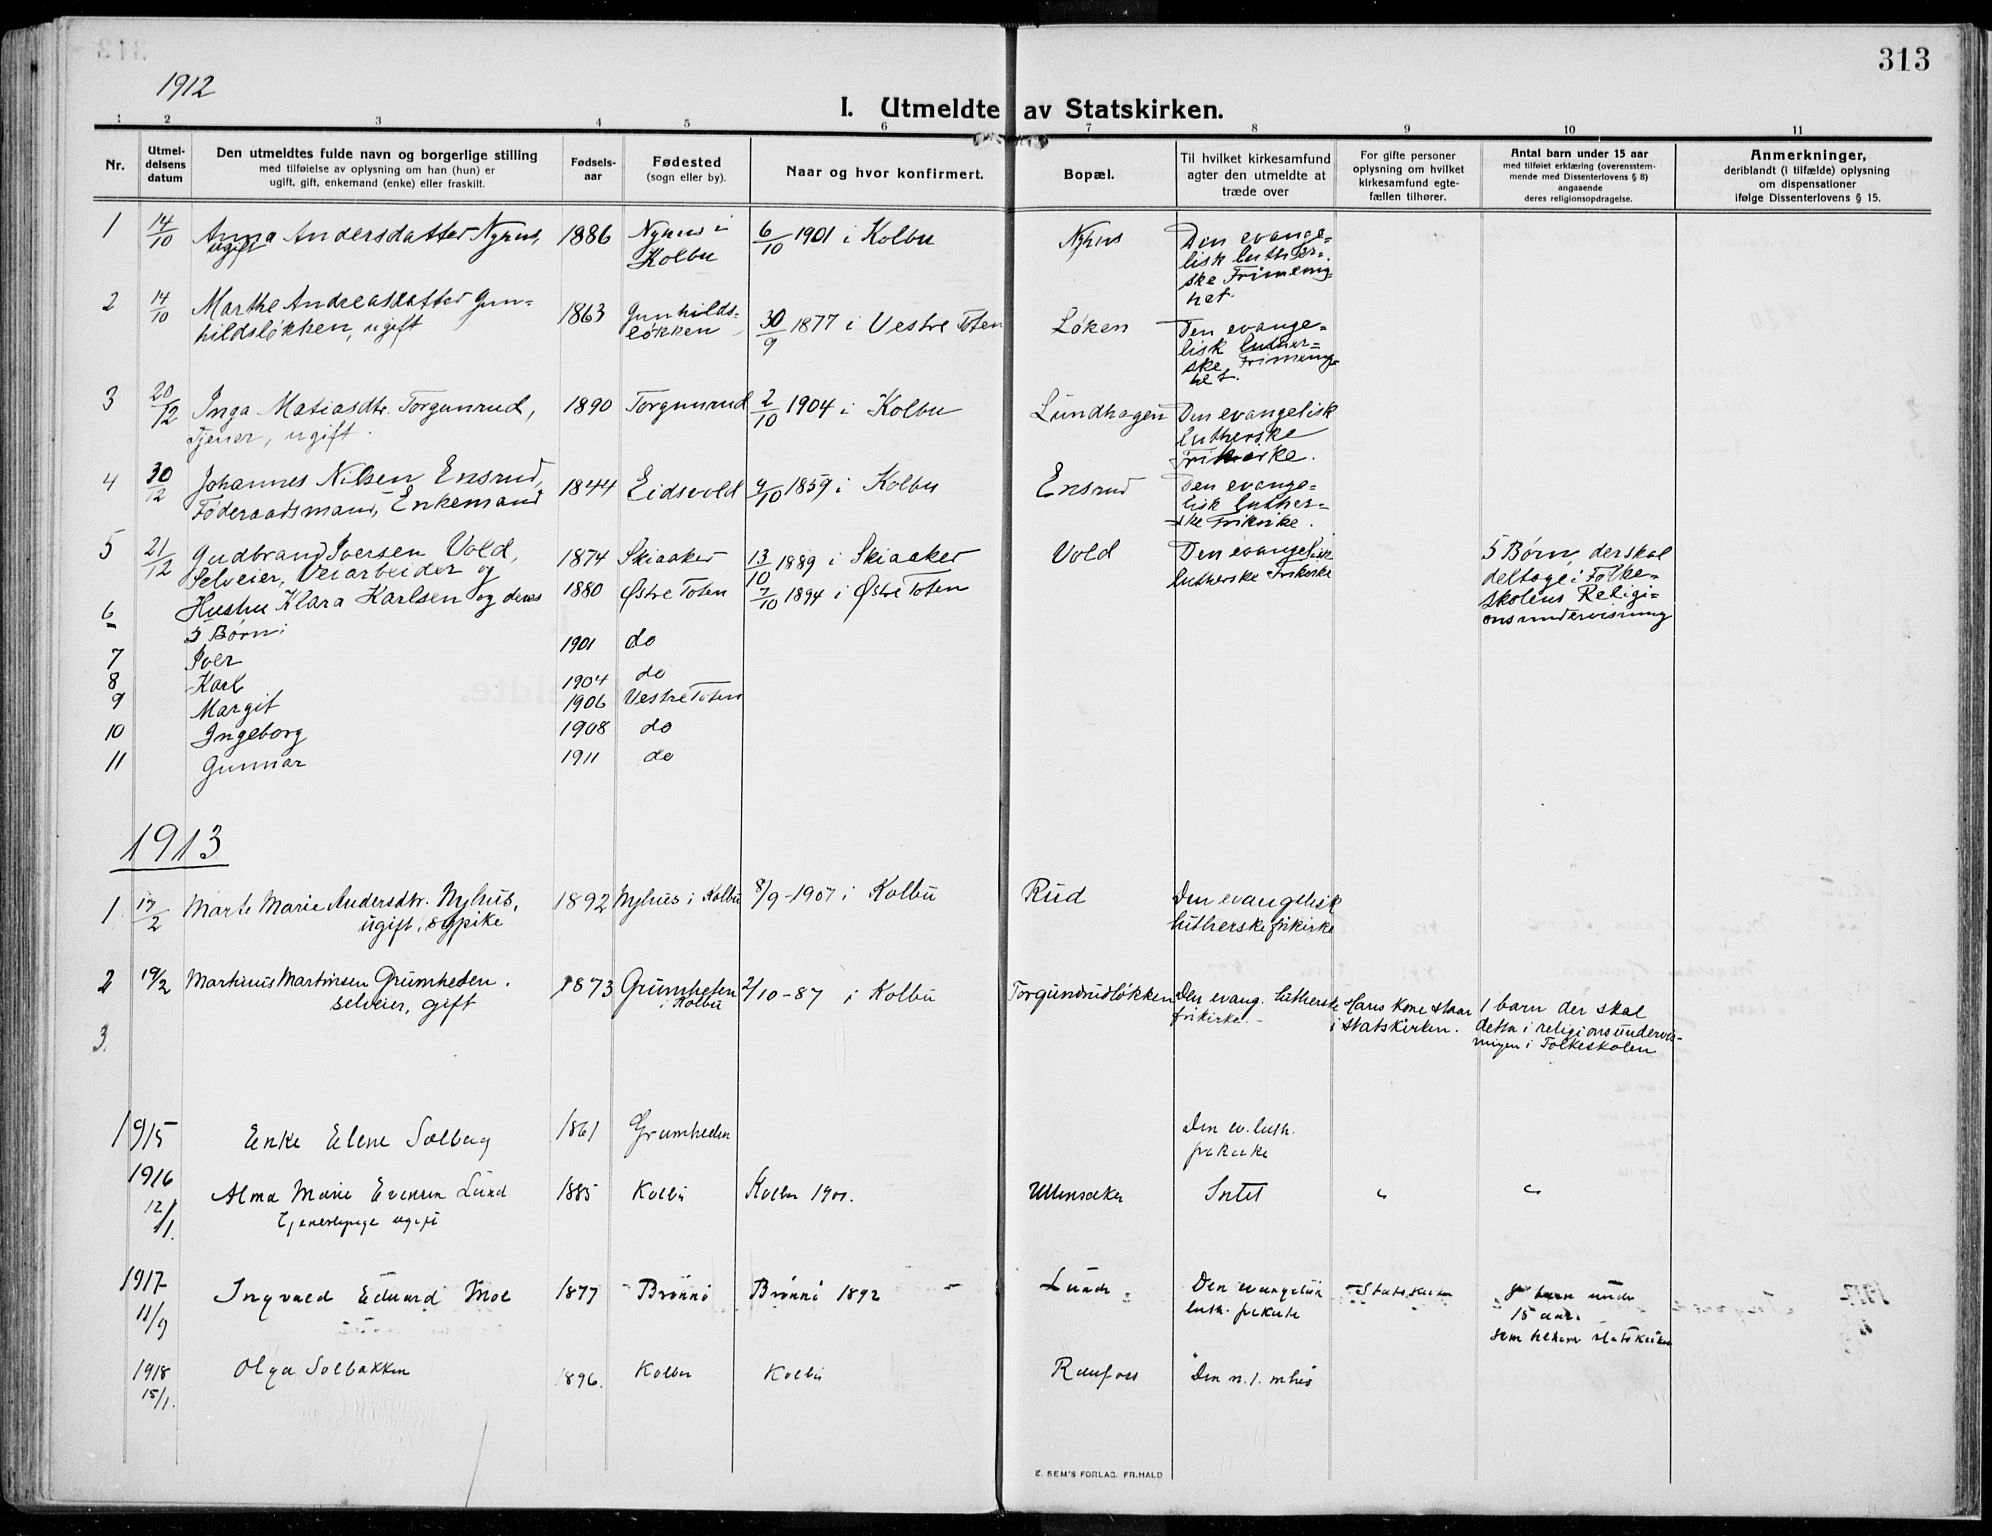 313
1912
I. Utmeldte av Statskirken.
1 2 3 4 5 6 7 8 9 10 11
Nr.
Utmel-
delsens
datum
Den utmeldtes fulde navn og borgerlige stilling
med tilføielse av oplysning om han (hun) er
ugift, gift, enkemand (enke) eller fraskilt.
Fødsels-
aar
Fødested
(sogn eller by).
Naar og hvor konfirmert.
Bopæl.
Til hvilket kirkesamfund
agter den utmeldte at
træde over
For gifte personer
oplysning om hvilket
kirkesamfund egte-
fællen tilhører.
Antal barn under 15 aar
med tilføiet erklæring (overensstem-
mende med Dissenterlovens § 8)
angaaende
deres religionsopdragelse.
Anmerkninger,
deriblandt (i tilfælde) oplysning
om dispensationer
ifølge Dissenterlovens § 15.
1 14/10 Anna Andersdatter Nyhus, 1886 Nyhus i 6/10 1901 i Kolbu Nyhus Den evange=
ugift Kolbu lisk luther=
ske Frimenig=
het.
2 14/10 Marthe Andreasdatter Gun= 1863 Gunhilds= 30/9 1877 i Vestre Toten Løken Den evange=
hildsløkken, ugift løkken lisk luther=
ske Frimenig=
het.
3 20/12 Inga Matiasdtr. Torgunrud, 1890 Torgunrud 2/10 1904 i Kolbu Lundhagen Den evangelisk
Tjener, ugift. lutherske
Frikirke.
4 30/12 Johannes Nilsen Ensrud, 1844 Eidsvold 9/10 1859 i Kolbu Ensrud Den evange=
Føderaadsmand, Enkemand lisk luther=
ske Frikirke.
5 21/12 Gudbrand Iversen Vold, 1874 Skiaaker 13/10 1889 i Skiaaker Vold Den evangelisk 5 Børn, der skal
Selveier, Veiarbeider og lutherske Frikirke deltage i Folke=
6 Hustru Klara Karlsen og deres 1880 Østre Toten 7/10 1894 i Østre Toten skolens Religi=
5 Børn: onsundervisning
7 Iver 1901 do
8 Karl 1904 do
9 Margit 1906 Vestre Toten
10 Ingeborg 1908 do
11 Gunnar 1911 do
1913
1 17/2 Marte Marie Andersdtr. Nyhus, 1892 Nyhus i Kolbu 8/9-1907 i Kolbu Rud Den evangelisk
ugift, sypike lutherske frikirke
2 19/2 Martinus Martinsen Grumheden. 1873 Grumheten 2/10-87 i Kolbu Torgunrudløkken Den evang. lutherske Hans kone staar 1 barn der skal
selveier, gift i Kolbu frikirke.- i statskirken. detta i religionsundervis-
ningen i Folkeskolen
3.
1915 Enke Elene Solberg 1861 Grumheden Den ev. luth.
frikirke
1916 Alma Marie Evensen Lund 1885 Kolbu Kolbu 1900. Ullensaker Intet " "
12/1. Tjenestepige ugift
1917 Ingvald Eduard Moe 1877 Brønnø Brønnø 1892 Lunde Den evangelisk Statskirken barn under
11/9 luth. frikirke 15 aar.
som tilhører statskirken
1918 Olga Solbakken 1896. Kolbu Kolbu Raufoss Den
15/1.
E. SEM'S FORLAG. FR.HALD